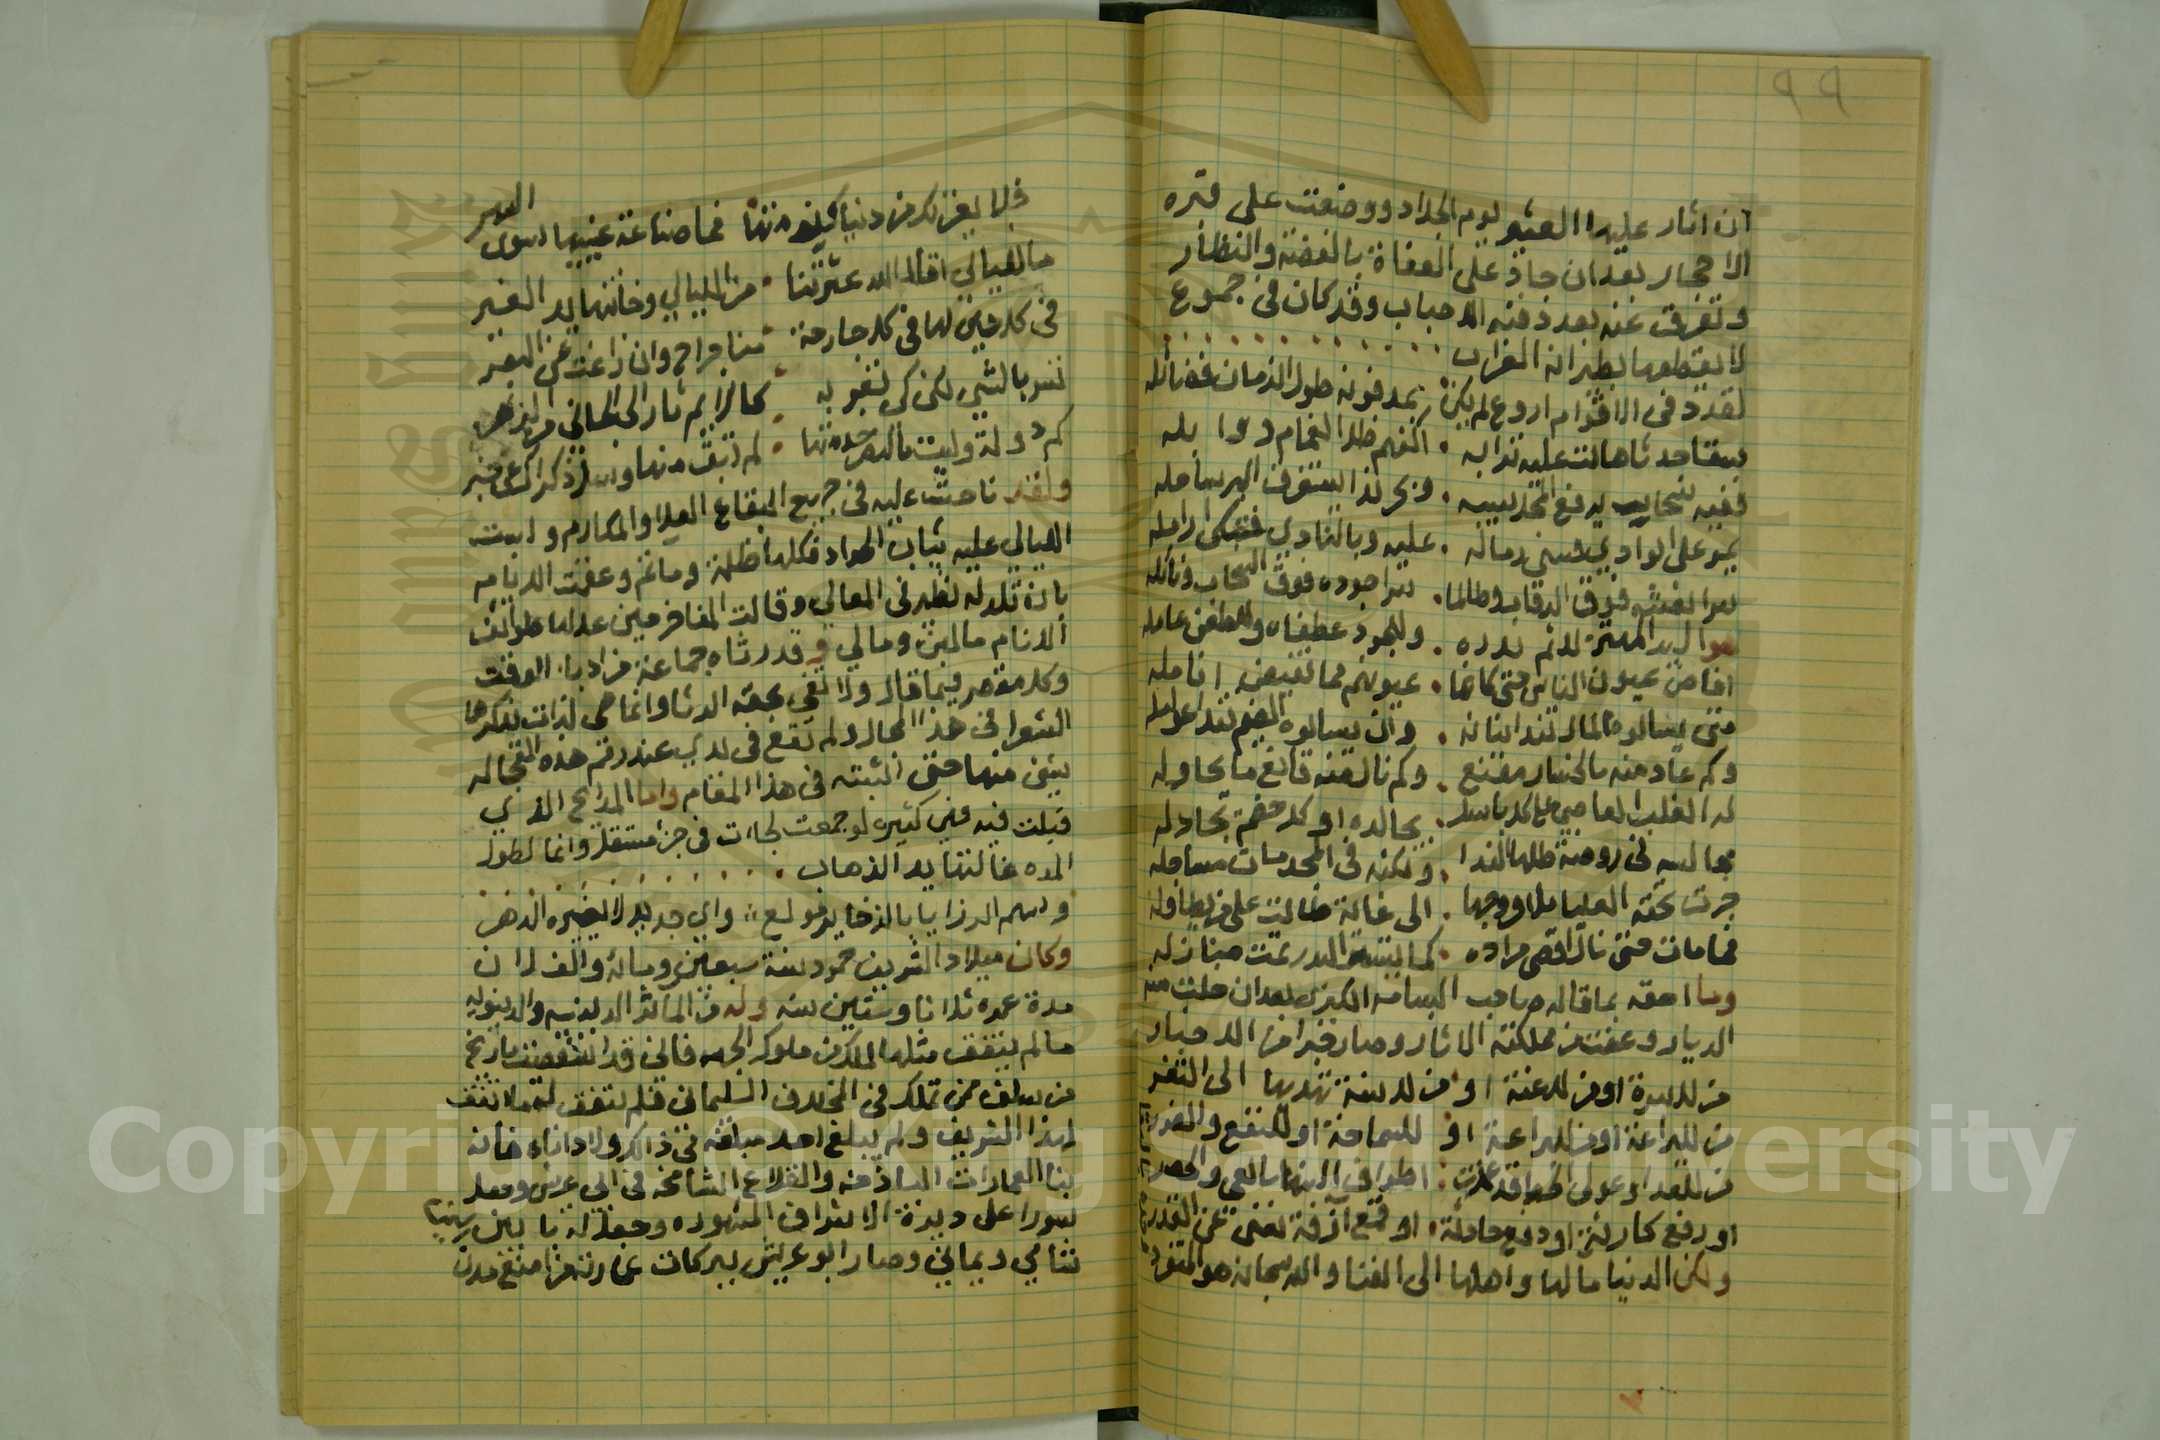 ٩٩
ان اثار عليها العثير يوم الجلاد ووضعت على قبره
الاحجار بعد ان جاد على العفاة بالفضة والنظار
وتفرقت عنه بعد دفنه الاحباب وقد كان في جموع
لا يقطعها بطيرانه الغراب
لقد في الاقوام اروع لم يكن . بمدفونه طول الزمان فضائله
سقا جدثا هالت عليه ترابه . اكفهم ظل الغمام ووابله
ففيه سحاب يرفع المحل سيبه . وبحر ندا يستغرق البر ساحله
يمر على الوادي فتثني رماله . عليه وبالنادي فتبكي ارامله
سرا نعشه فوق الرقاب وطالما . سرا جوده فوق السحاب ونائله
هوا البدر المهتز لدائم بدره . وللجود عطفاه وللطعن عامله
افاض عيون الناس حتى كانما . عيونهم مما تفيض انامله
متى يسالوه المال تندا بنانه . وان يسالوه الضيم تندا عوامله
وكم عاد منه بالخسار مقنع . وكم نال منه قانع ما يحاوله
له الغلب العاصي على كل باسل . يجالده او كل خصم يجادله
نجالسه في روضة طلها الندا . ولكنه في المجد مات مساجله
جرت تحته العليا ملا فروجها . الى غاية طالت على من يطاوله
فما مات حتى نال اقصى مراده . كما يستتم البدر تمت منازله
وما احقه بما قاله صاحب البسامه الكبرى بعد ان خلت منه
الديار وعفت من مملكته الاثار وصار خبرا من الاخبار
من للاسرة او من للاعنة او من للاسنة تهديها الى الثغر
من لليراعة او من للبراعة او للسماحة او للنفع والضرر
او رفع كارثة او دفع حادثة . او قمع آزفة تعيي على القدر
ولكن الدنيا مالها واهلها الى الفنا والله سبحانه هو المتفرد
فلا يغرنك من دنياك نومتها فما صناعة عينيها سوى السهر
ما لليالي اقال الله عثرتنا . من الليالي وخانتها يد الغير
في كل حين لها في كل جارحة . منا جراح وان زاغت عن البصر
تسر بالشي لكن كي تغر به . كالايم ثار الى الجاني من الزهر
كم دولة وليت بالنصر خدمتها . لم تبق منها وسل ذكراك عن خبر
ولقد ناحت عليه في جميع البقاع العلا والمكارم ولبست
الليالي عليه ثياب الحداد فكلها ظلمة ومأتم وعقت الايام
بان تلد له نظير في المعالي وقالت المفاخر حين عدلها طوائف
الانام مالمن ومالي وقد رثاه جماعة من ادباء الوقت
وكل مقصر فيما قال ولا تفي بحقه الرثا وانما هي لذات تذكرها
الشعرا في هذا المجال ولم تقع في يدي عند رقم هذه العجاله
شي منها حتى اثبته في هذا المقام واما المدايح الذي
قيلت فيه فهي كثيره لو جمعت لجاءت في جزء مستقل وانما لطول
المده غالتها يد الذهاب
وسهم الرزايا بالذخاير مولع : واي جديد لا يغيره الدهر
وكان ميلاد الشريف حمود سنة سبعين ومائة والف لان
مدة عمره ثلاثا وستين سنه وله من المآثر الدينيه والدنيويه
ما لم يتفق مثلها لملك من ملوك الجهه فاني قد استقصيت تاريخ
من سلف ممن تملك في المخلاف السليماني فلم يتفق لهم ما اتفق
لهذا الشريف ولم يبلغ احد مبلغه في ذالك ولا داناه فانه
بنا العمارات الباذخه والقلاع الشامخه في ابي عريش وجعل
سورا على ديرة الاشراف المشهوره وجعل له بابين
شامي ويماني وصار ابو عريش ببركات عمارته من امنع مدن